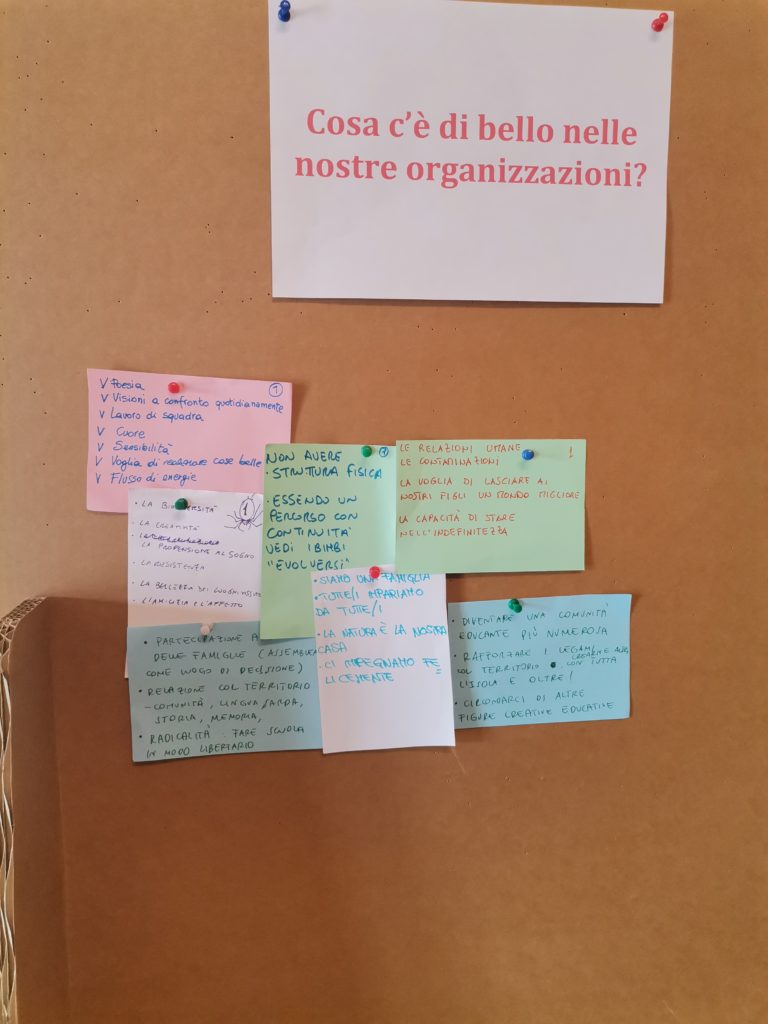 Cosa c'è di bello nelle
nostre organizzazioni?
1
V Poesia
V Visioni a confronto quotidianamente
V Lavoro di squadra
V Cuore
V Sensibilità
V Voglia di realizzare cose belle
V Flusso di energie
1
• LA BIODIVERSITÀ
• LA CREATIVITÀ
LA PROPENSIONE AL SOGNO
• LA RESISTENZA
• LA BELLEZZA DEI LUOGHI
• L'AMICIZIA E L'AFFETTO
NON AVERE
• STRUTTURA FISICA
• ESSENDO UN
PERCORSO CON
CONTINUITÀ
VEDI I BIMBI
"EVOLVERSI"
1
LE RELAZIONI UMANE
LE CONTAMINAZIONI
LA VOGLIA DI LASCIARE AI
NOSTRI FIGLI UN MONDO MIGLIORE
LA CAPACITÀ DI STARE
NELL'INDEFINITEZZA
• PARTECIPAZIONE A
DELLE FAMIGLIE (ASSEMBLEA
COME LUOGO DI DECISIONE)
• RELAZIONE COL TERRITORIO
– COMUNITÀ, LINGUA SARDA,
STORIA, MEMORIA,
• RADICALITÀ: FARE SCUOLA
IN MODO LIBERTARIO
• SIAMO UNA FAMIGLIA
• TUTTE/I IMPARIAMO
DA TUTTE/I
• LA NATURA È LA NOSTRA
CASA
• CI IMPEGNAMO FE
LICEMENTE
• DIVENTARE UNA COMUNITÀ
EDUCANTE PIÙ NUMEROSA
• RAFFORZARE I LEGAMI
COL TERRITORIO, CON TUTTA
L'ISOLA E OLTRE!
• CIRCONDARCI DI ALTRE
FIGURE CREATIVE EDUCATIVE